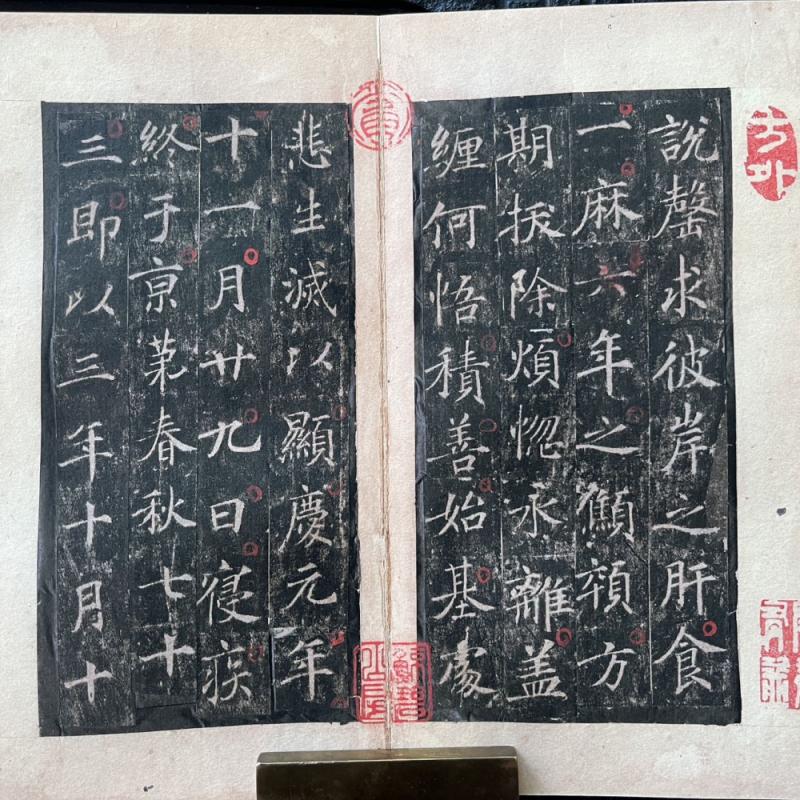 說罄求彼岸之肝食
一麻六年之願頟方
期拔除煩惚永離盖
纏何悟積善始基處
悲生滅以顯慶元年
十一月廿九日寑疾
終于京苐春秋七十
三即以三年十月十